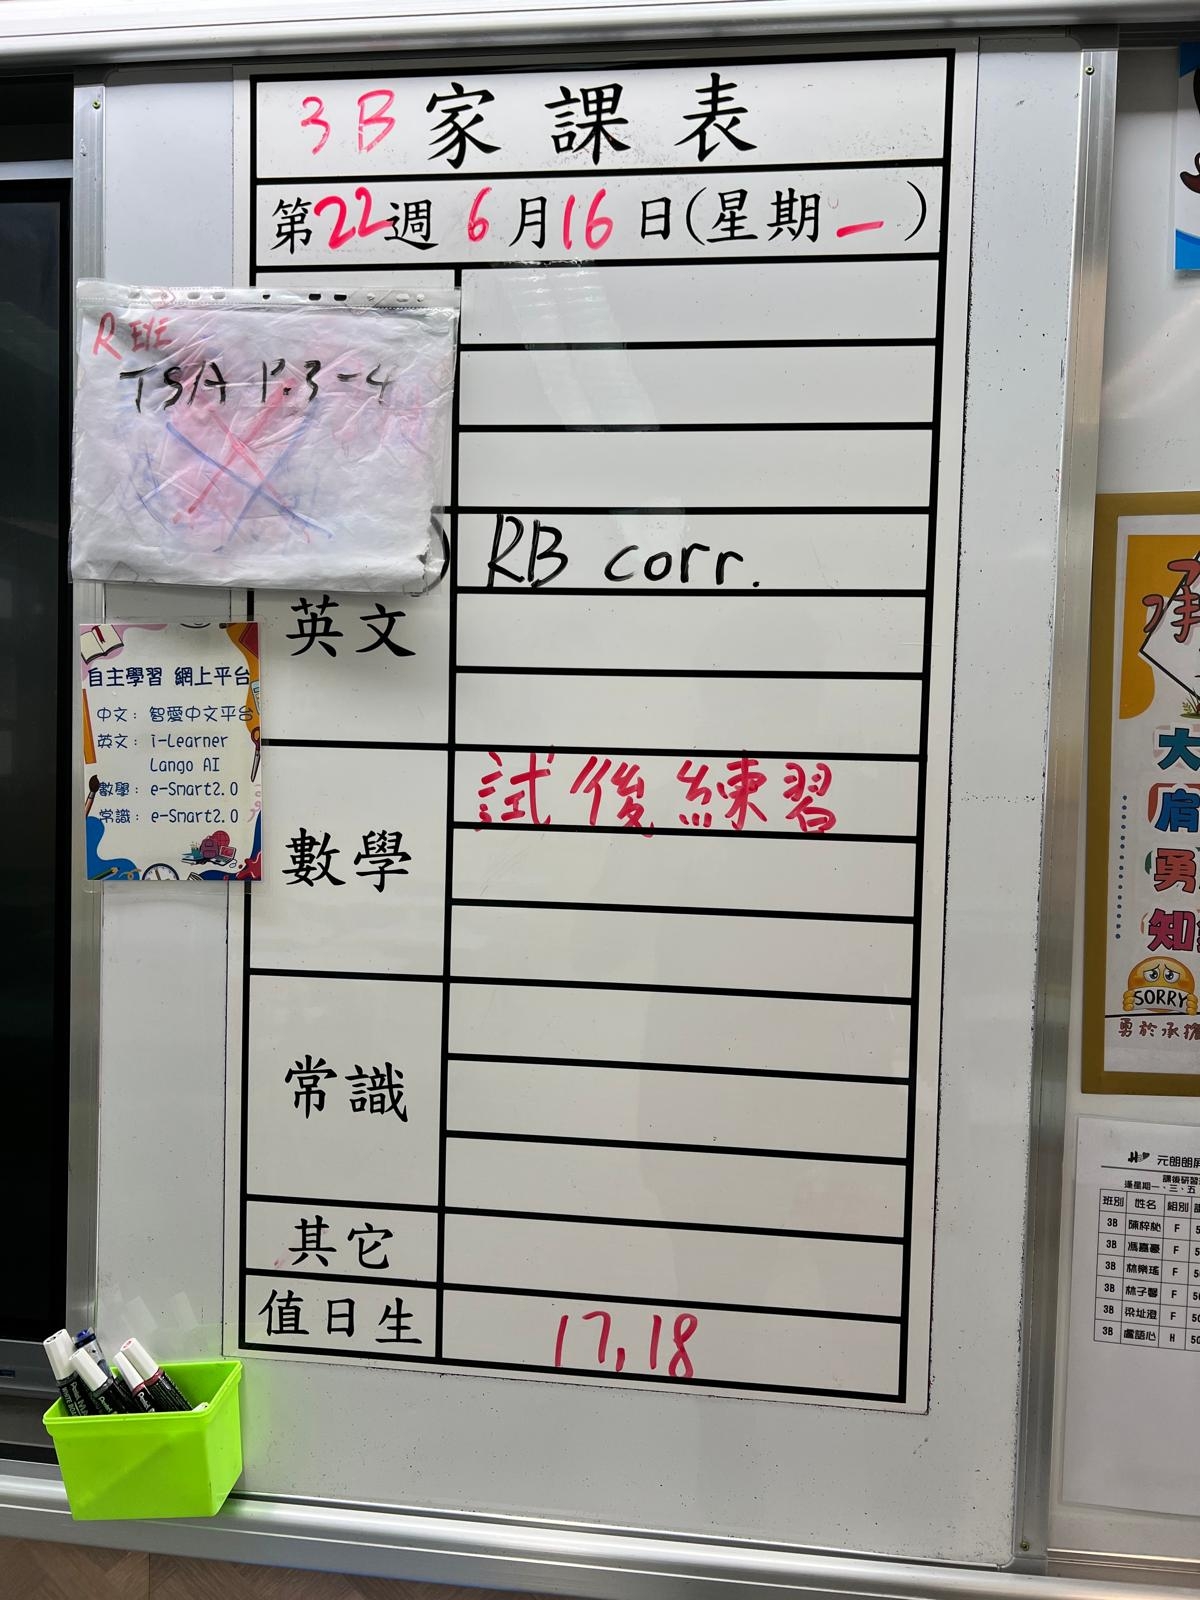 3B家課表
第22週 6月16日(星期一)
R EYE
TSA P.3-4
RB corr.
英文
自主學習 網上平台
中文：智愛中文平台
英文：i-Learner
Lango AI
數學：e-Smart2.0
常識：e-Smart2.0
試後練習
數學
常識
其它
值日生 17,18
大
肩
勇
知
SORRY
勇於承擔
元朗朗屏
課後研習
逢星期一、三、五
班別 姓名 組別
3B F
3B 馮嘉豪 F
3B 林樂瑤 F
3B 林子馨 F
3B 梁址澄 F
3B 盧語心 H